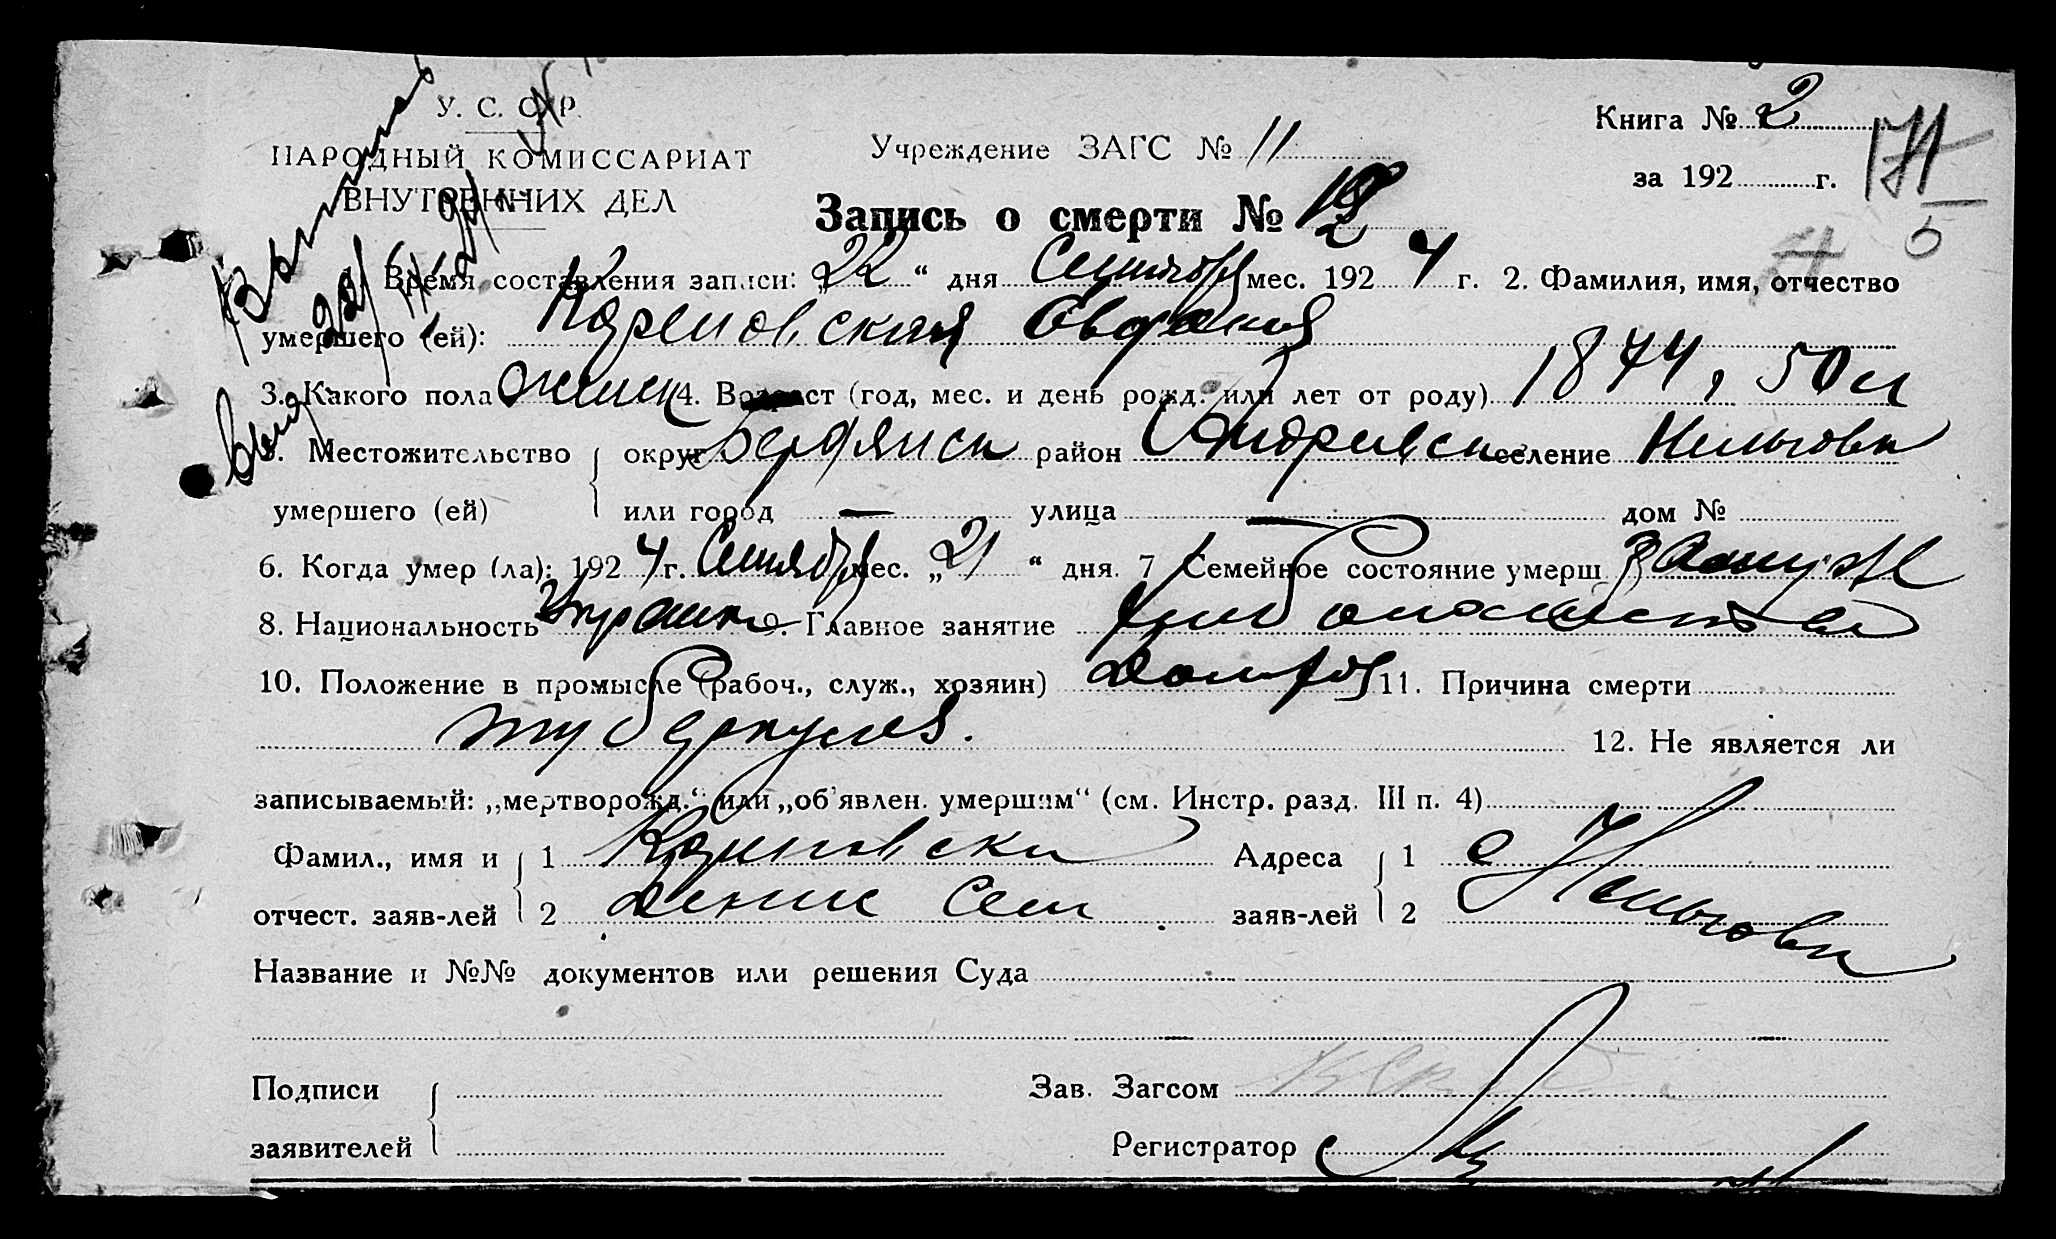 У. С. С. Р.
НАРОДНЫЙ КОМИССАРИАТ
ВНУТРЕННИХ ДЕЛ
Учреждение ЗАГС № 11
Книга № 2
за 192 г.
171
5
Запись о смерти №
Время составления записи: „22“ дня Сентября мес. 1924 г. 2. Фамилия, имя, отчество
умершего (ей): Евдокия
3. Какого пола женск 4. Возраст (год, мес. и день рожд. или лет от роду) 1874, 50 л
5. Местожительство округ Бердянск район Андреевск селение Нельговк
умершего (ей) или город — улица — дом №
6. Когда умер (ла): 1924 г. Сентября мес. „21“ дня. 7 Семейное состояние умерш Замуж
8. Национальность Украинк 9. Главное занятие хлебопашество
10. Положение в промысле (рабоч., служ., хозяин) 11. Причина смерти
туберкулез.
12. Не является ли
записываемый: „мертворожд.“ или „об'явлен. умершим“ (см. Инстр. разд. III п. 4)
Фамил., имя и 1 Адреса 1 с Нельговк
отчест. заяв-лей 2 Денис Сем заяв-лей 2
Название и №№ документов или решения Суда
Подписи Зав. Загсом
заявителей Регистратор